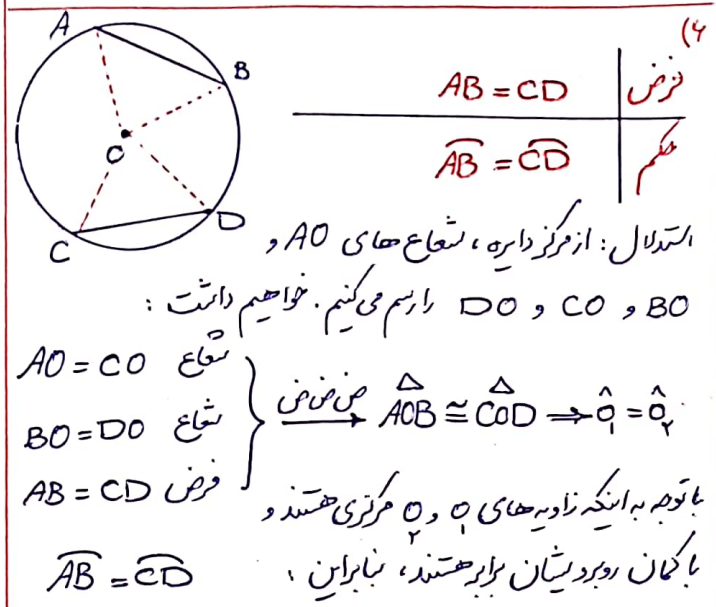 ۶)
A
B
O
C
D
فرض AB = CD
حکم AB͡ = CD͡
استدلال: از مرکز دایره، شعاع های AO و
BO و CO و DO را رسم می کنیم. خواهیم داشت:
AO = CO شعاع
BO = DO شعاع
AB = CD فرض
ض ض ض → △AOB ≅ △COD ⇒ Ô₁ = Ô₂
با توجه به اینکه زاویه های O₁ و O₂ مرکزی هستند و
با کمان روبرویشان برابر هستند، بنابراین:
AB͡ = CD͡